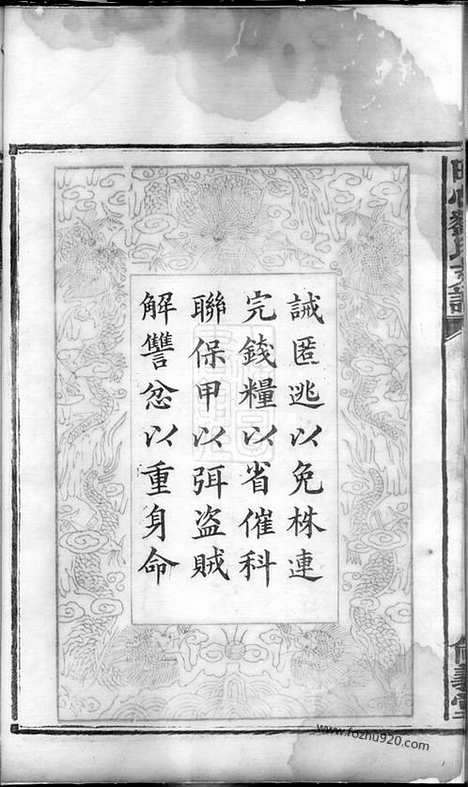 誡匿逃以免株連
完錢糧以省催科
聯保甲以弭盜賊
解讐忿以重身命
www.fozhu920.com